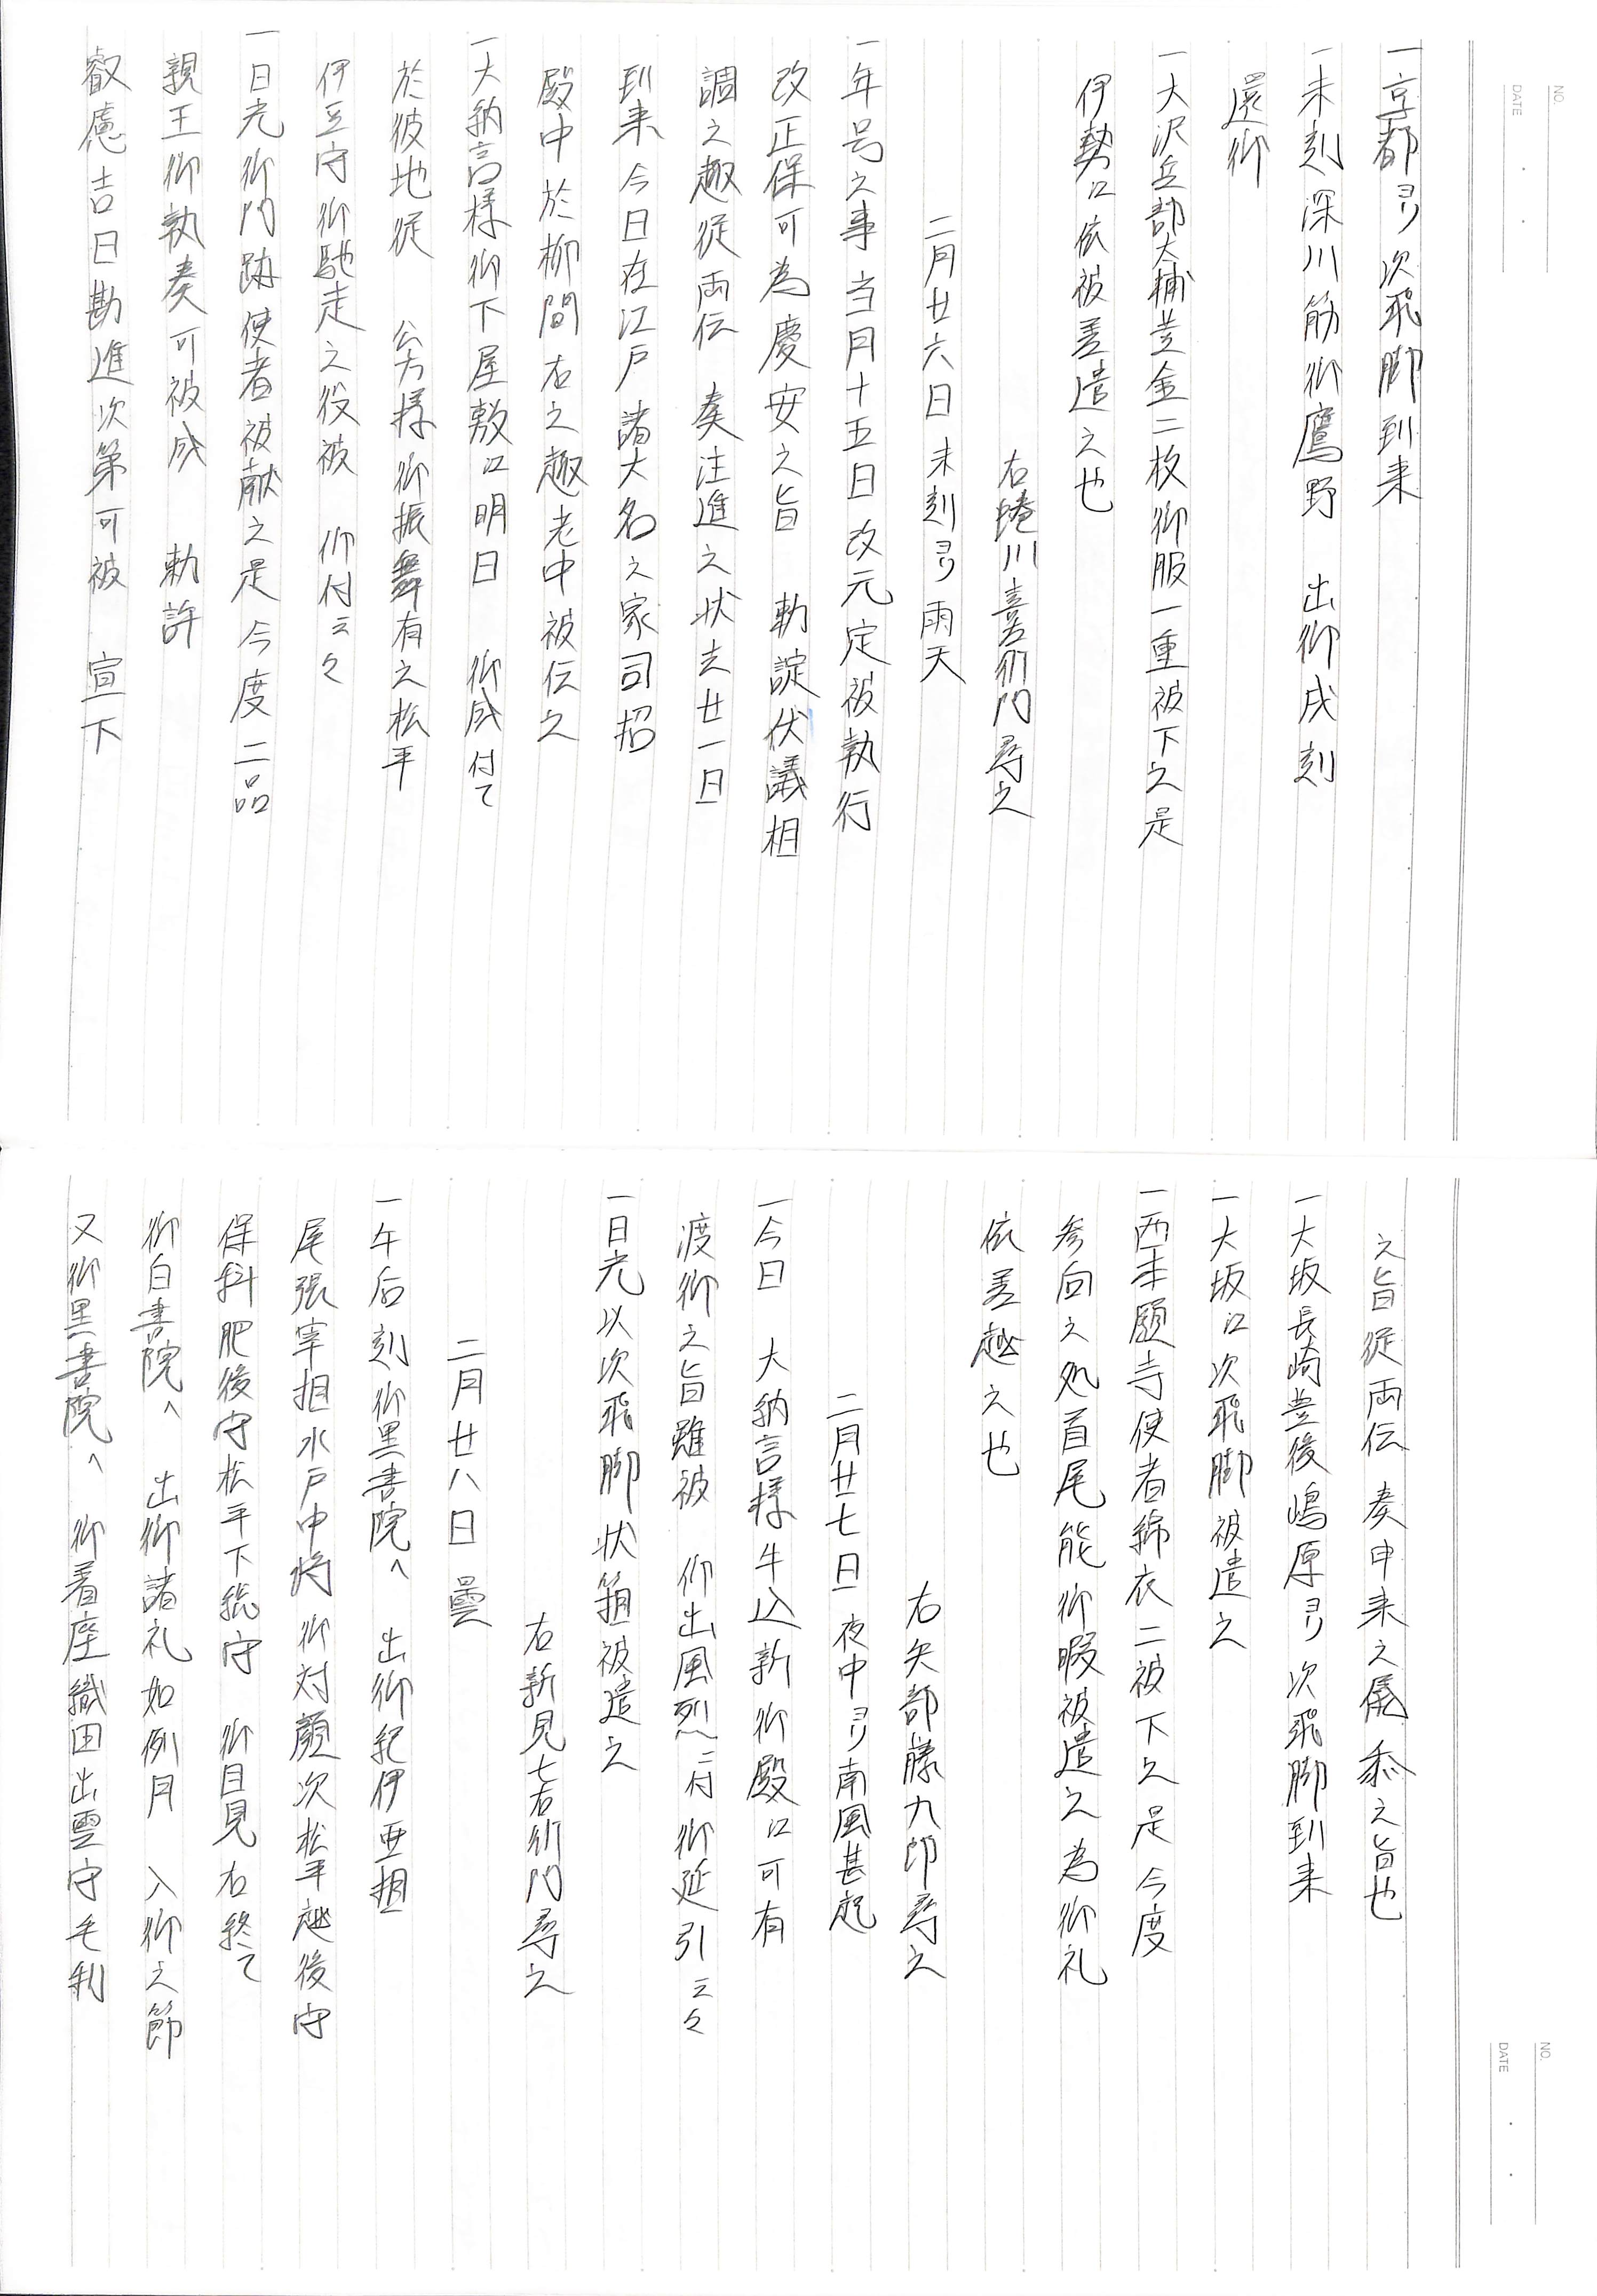 NO.
DATE
一京都ヨリ次飛脚到来
一未刻深川筋御鷹野　出御戌刻
還御
一大沢兵部大輔黄金二枚御服一重被下之是
伊勢江依被差遣之也
右蜷川喜左衛門尋之
二月廿六日未刻ヨリ雨天
一年号之事当月十五日改元定被執行
改正保可為慶安之旨　勅諚伏議相
調之趣従両伝　奏注進之状去廿一日
到来今日在江戸諸大名之家司招
殿中於柳間右之趣老中被伝之
一大納言様御下屋敷江明日　御成付て
於彼地従　公方様御振舞有之松平
伊豆守御馳走之役被　仰付云々
一日光御門跡使者被献之是今度二品
親王御執奏可被成　勅許
叡慮吉日勘進次第可被　宣下
NO.
DATE
之旨従両伝　奏申来之儀忝之旨也
一大坂長崎豊後嶋原ヨリ次飛脚到来
一大坂江次飛脚被遣之
一西本願寺使者綿衣二被下之是今度
参向之処首尾能御暇被遣之為御礼
依差越之也
右矢部藤九郎尋之
二月廿七日夜中ヨリ南風甚起
一今日　大納言様牛込新御殿江可有
渡御之旨雖被　仰出風烈ニ付御延引云々
一日光以次飛脚状箱被遣之
右新見七右衛門尋之
二月廿八日　曇
一午后刻御黒書院へ　出御紀伊亜相
尾張宰相水戸中将御対顔次松平越後守
保科肥後守松平下総守　御目見右終て
御白書院へ　出御諸礼如例月　入御之節
又御黒書院へ　御着座織田出雲守毛利